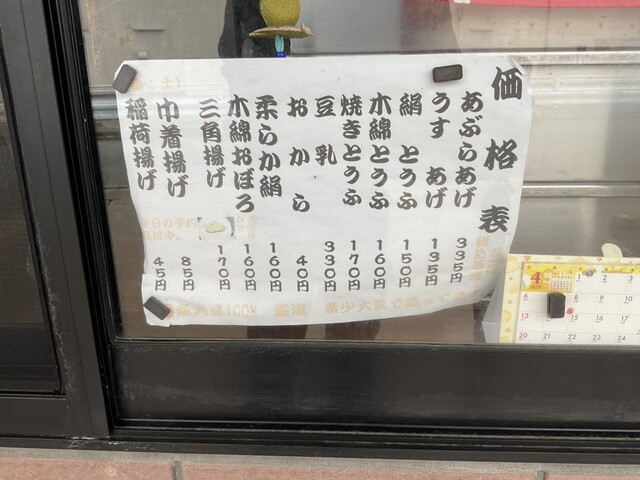 価格表
あぶらあげ 335円
うすあげ 135円
絹とうふ 150円
木綿とうふ 160円
焼きとうふ 170円
豆乳 330円
おから 40円
柔らか絹 160円
木綿おぼろ 160円
三角揚げ 170円
巾着揚げ 85円
稲荷揚げ 45円
の予約
受付中。
大豆100%
厳選
希少大豆で造って
4
1 2 3 4
8 9 10
13 15 16 17 18
20 22 23 24 25